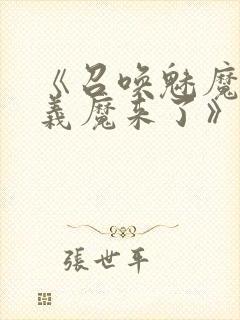 《召唤魅魔
義魔来了》
張世平